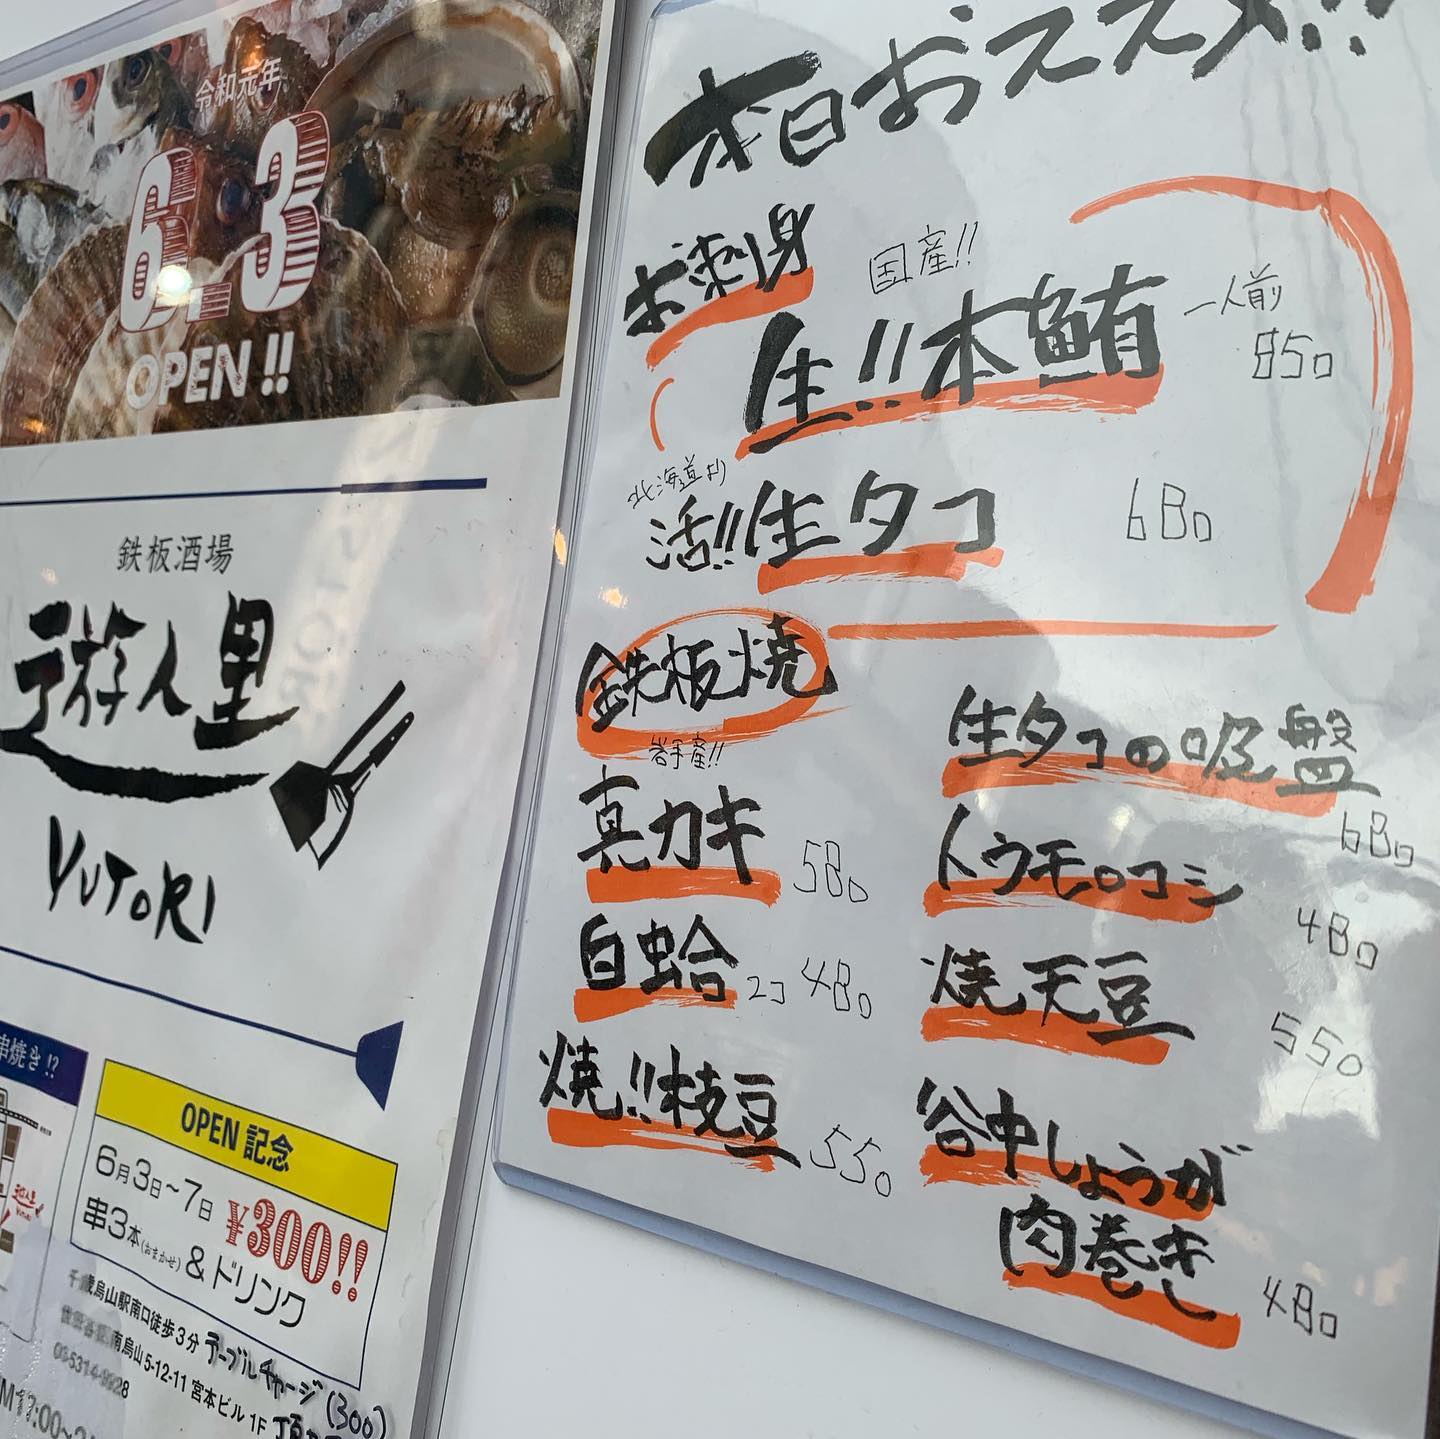 令和元年
6.3
OPEN!!
鉄板酒場
遊人里
YUTORI
串焼き!?
OPEN 記念
6月3日~7日 ¥300!!
串3本(おまかせ)&ドリンク
千歳烏山駅南口徒歩3分 テーブルチャージ(300)
南烏山5-12-11 宮本ビル 1F
本日おススメ!!
お刺身
国産!!
生!!本鮪 一人前 850
北海道より
活!!生タコ 680
鉄板焼
岩手産!!
真カキ 580
白蛤 2コ 480
焼!!枝豆 550
生タコの吸盤 680
トウモロコシ 480
焼天豆 550
谷中しょうが
肉巻き 480